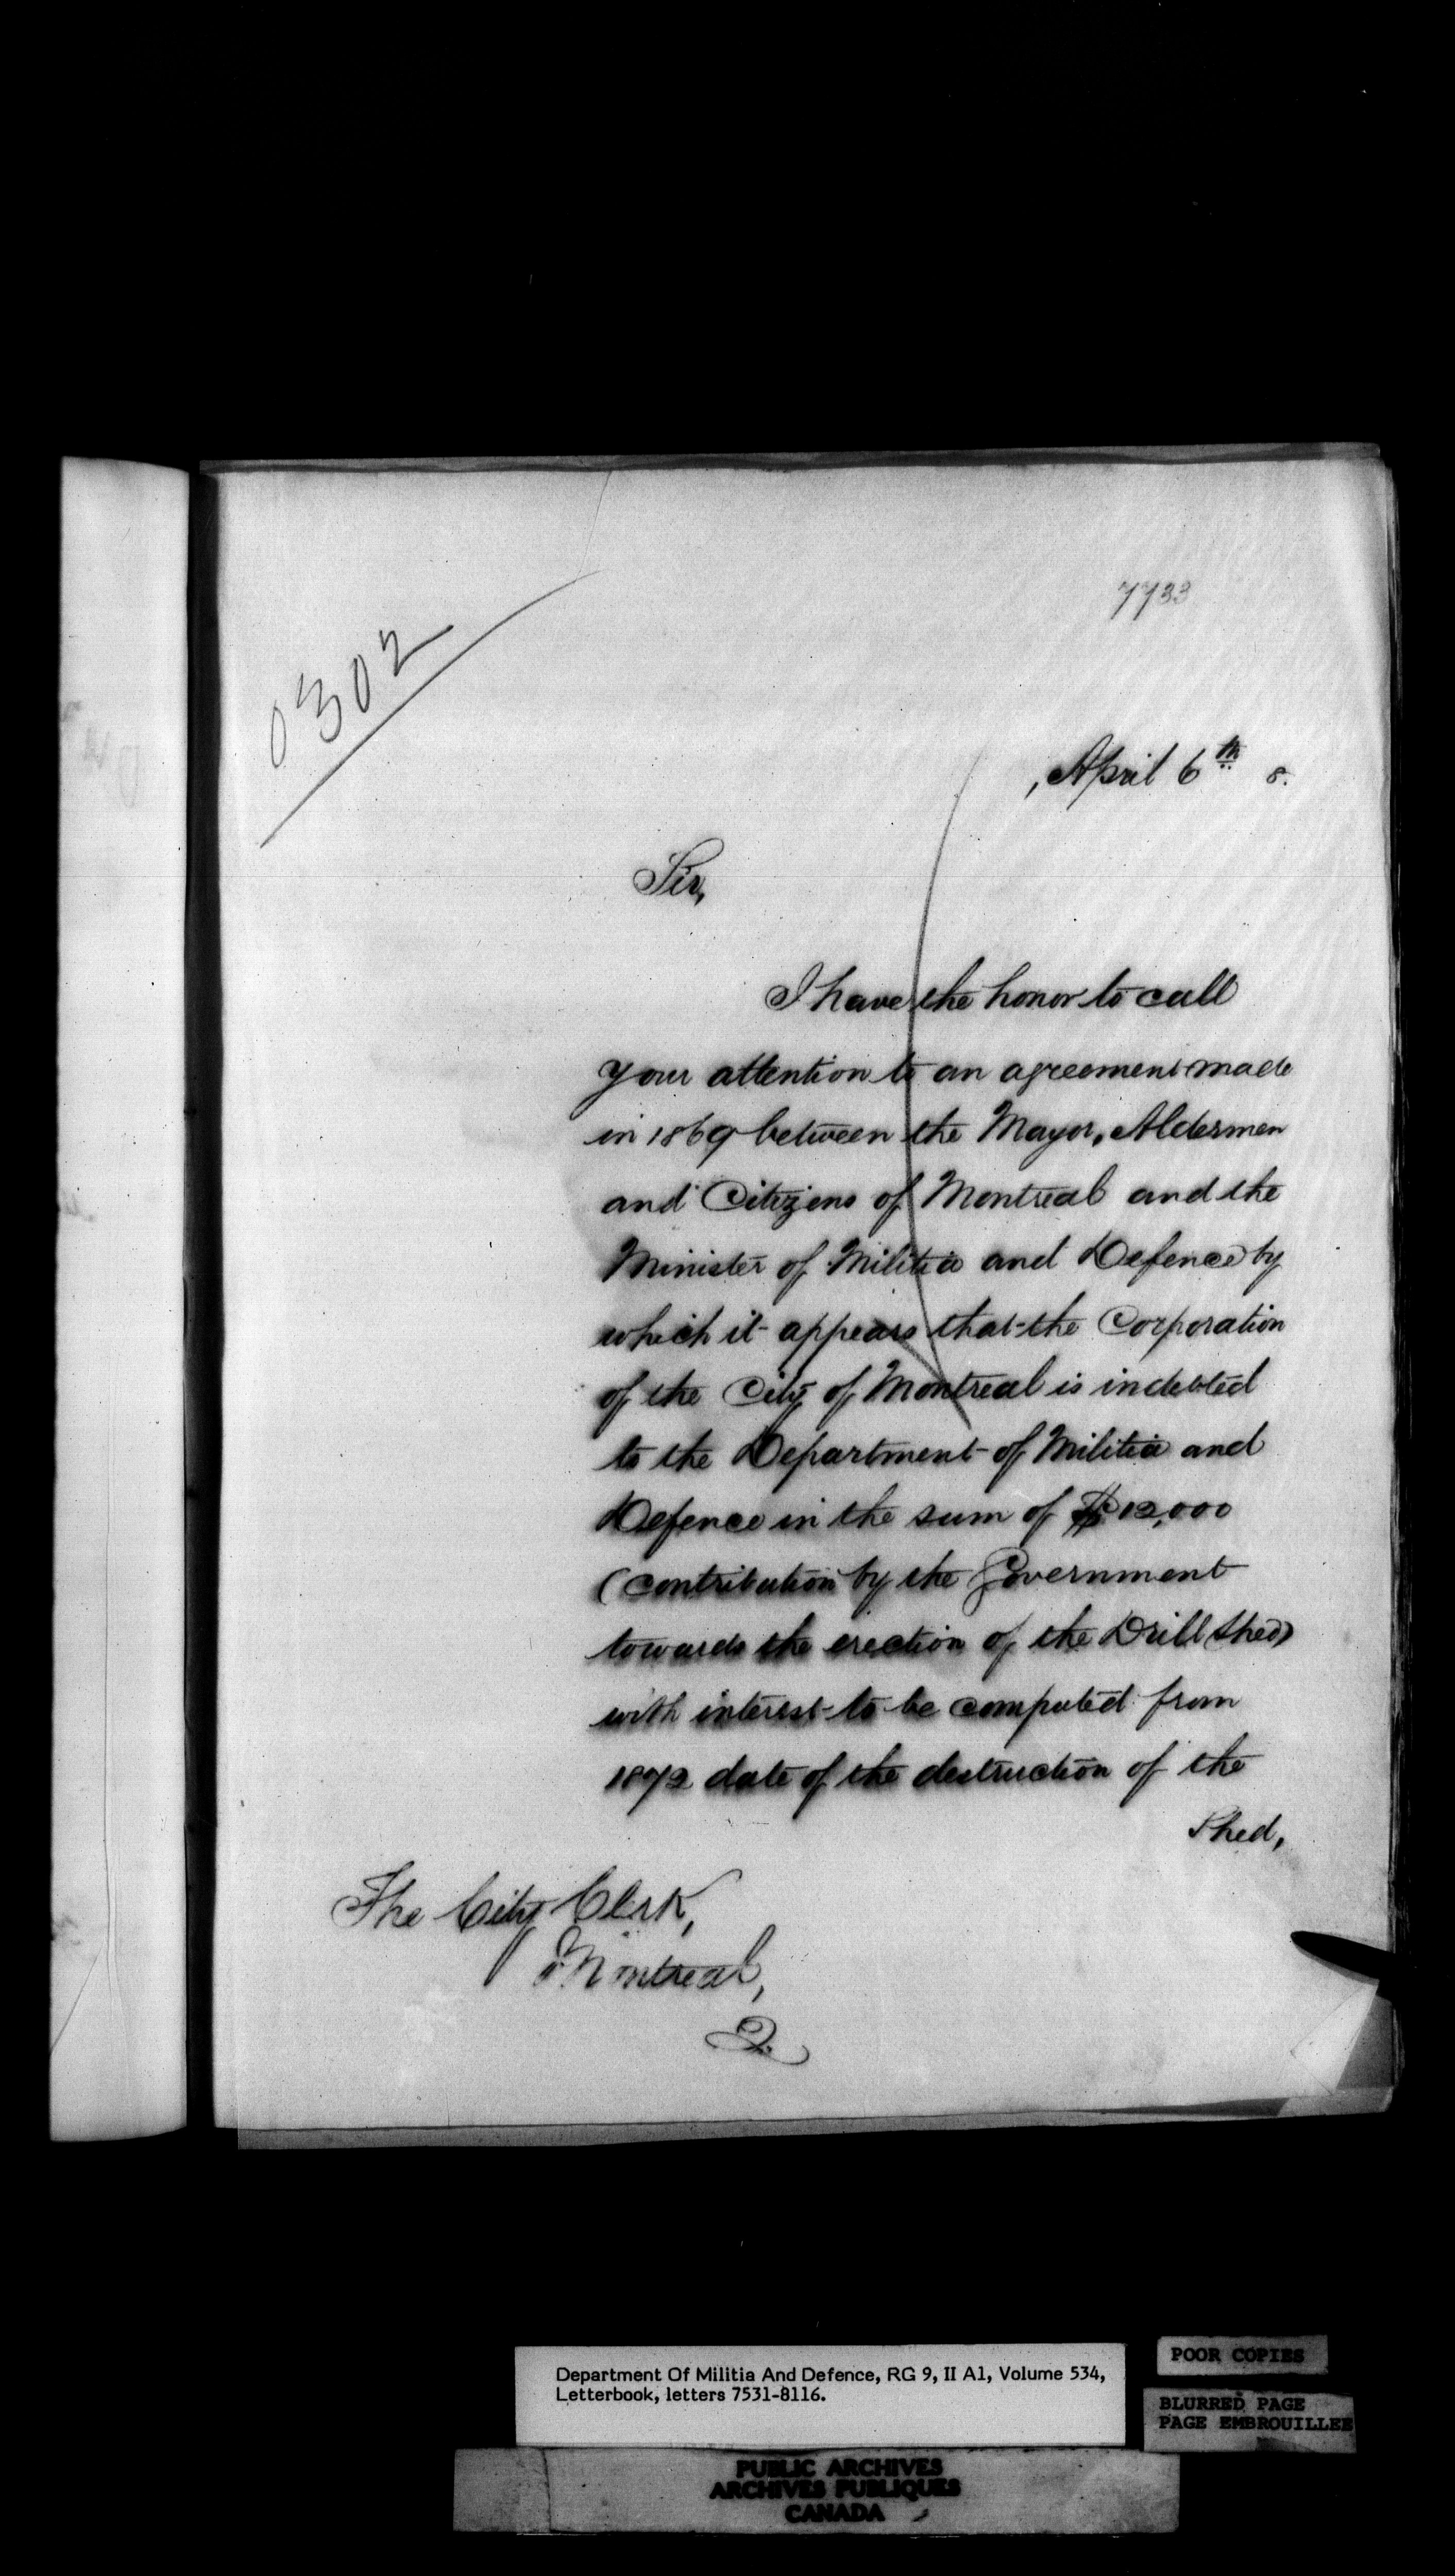 7733
0302
, April 6th 8.
Sir,
I have the honor to call
your attention to an agreement made
in 1869 between the Mayor, Aldermen
and Citizens of Montreal and the
Minister of Militia and Defence by
which it appears that the Corporation
of the City of Montreal is indebted
to the Department of Militia and
Defence in the sum of $12,000
(contribution by the Government
towards the erection of the Drill Shed)
with interest to be computed from
1872 date of the destruction of the
Shed,
The City Clerk,
Montreal,
Q.
Department Of Militia And Defence, RG 9, II A1, Volume 534,
Letterbook, letters 7531-8116.
POOR COPIES
BLURRED PAGE
PAGE EMBROUILLEE
PUBLIC ARCHIVES
ARCHIVES PUBLIQUES
CANADA